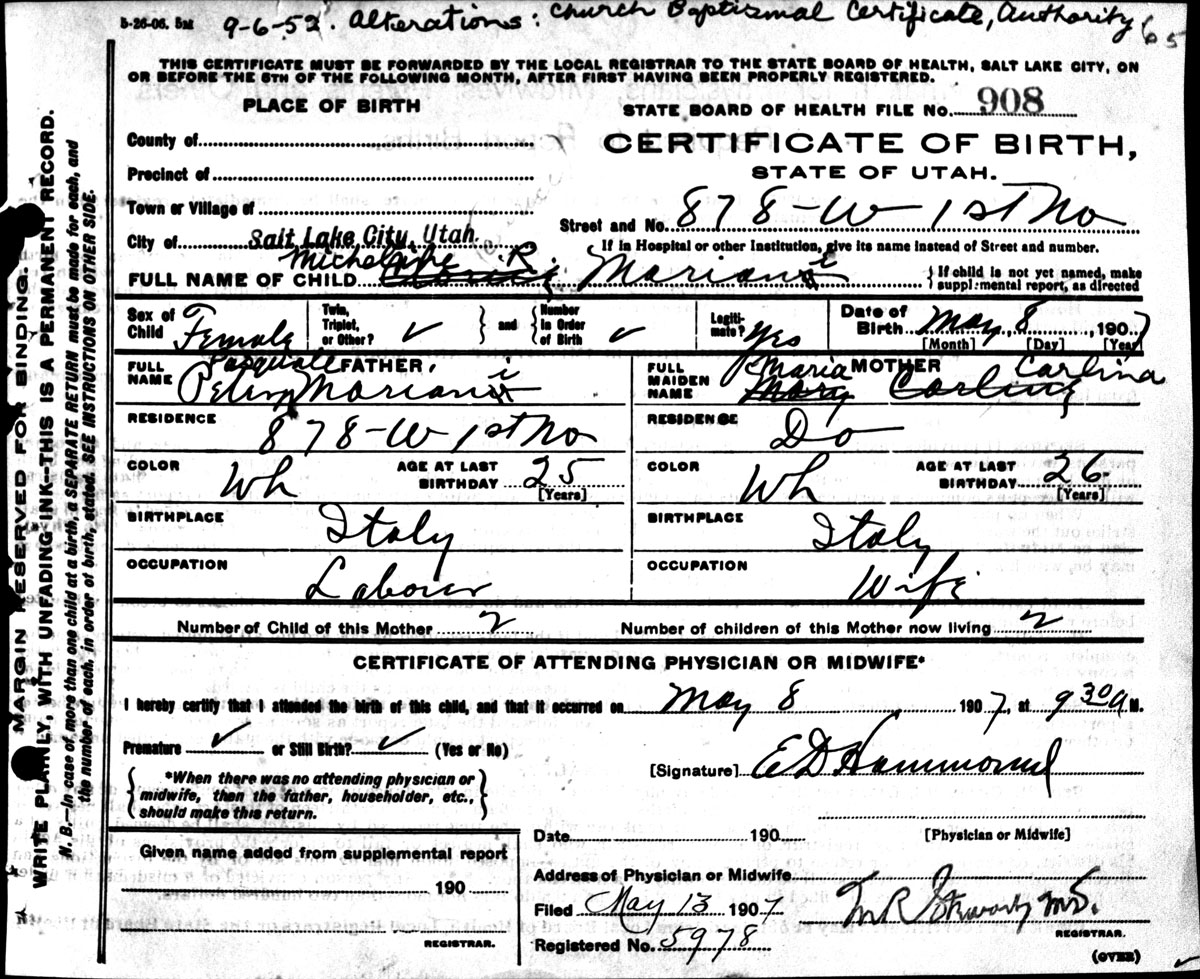 5-26-06. 5M 9-6-52. Alterations: Church Baptismal Certificate, Authority 65
THIS CERTIFICATE MUST BE FORWARDED BY THE LOCAL REGISTRAR TO THE STATE BOARD OF HEALTH, SALT LAKE CITY, ON
OR BEFORE THE 5TH OF THE FOLLOWING MONTH, AFTER FIRST HAVING BEEN PROPERLY REGISTERED.
PLACE OF BIRTH
County of
Precinct of
Town or Village of
City of Salt Lake City, Utah.
STATE BOARD OF HEALTH FILE No. 908
CERTIFICATE OF BIRTH,
STATE OF UTAH.
Street and No. 878-W 1st No
If in Hospital or other Institution, give its name instead of Street and number.
Michelaine R.
FULL NAME OF CHILD Mariani
{If child is not yet named, make
supplemental report, as directed
Sex of Child Female
Twin, Triplet, or Other? ✓ } and { Number in Order of Birth ✓
Legitimate? Yes
Date of Birth May 8, 1907
[Month] [Day] [Year]
FATHER
Pasquale
FULL NAME Peter Mariani
RESIDENCE 878-W 1st No
COLOR Wh AGE AT LAST BIRTHDAY 25
[Years]
BIRTHPLACE Italy
OCCUPATION Labour
MOTHER
Maria Carlina
FULL MAIDEN NAME Mary Carling
RESIDENCE Do
COLOR Wh AGE AT LAST BIRTHDAY 26
[Years]
BIRTHPLACE Italy
OCCUPATION Wife
Number of Child of this Mother 2 Number of children of this Mother now living 2
CERTIFICATE OF ATTENDING PHYSICIAN OR MIDWIFE*
I hereby certify that I attended the birth of this child, and that it occurred on May 8, 1907, at 9 30 a M.
Premature ✓ or Still Birth? ✓ (Yes or No)
{*When there was no attending physician or
midwife, then the father, householder, etc.,
should make this return.}
[Signature] E D Hammond
Date 190 [Physician or Midwife]
Given name added from supplemental report
190
REGISTRAR.
Address of Physician or Midwife
Filed May 13 1907 M R Stewart M.D.
REGISTRAR.
Registered No. 5978
(OVER)
MARGIN RESERVED FOR BINDING.
WRITE PLAINLY, WITH UNFADING INK—THIS IS A PERMANENT RECORD.
N. B.—In case of more than one child at a birth, a SEPARATE RETURN must be made for each, and
the number of each, in order of birth, stated. SEE INSTRUCTIONS ON OTHER SIDE.